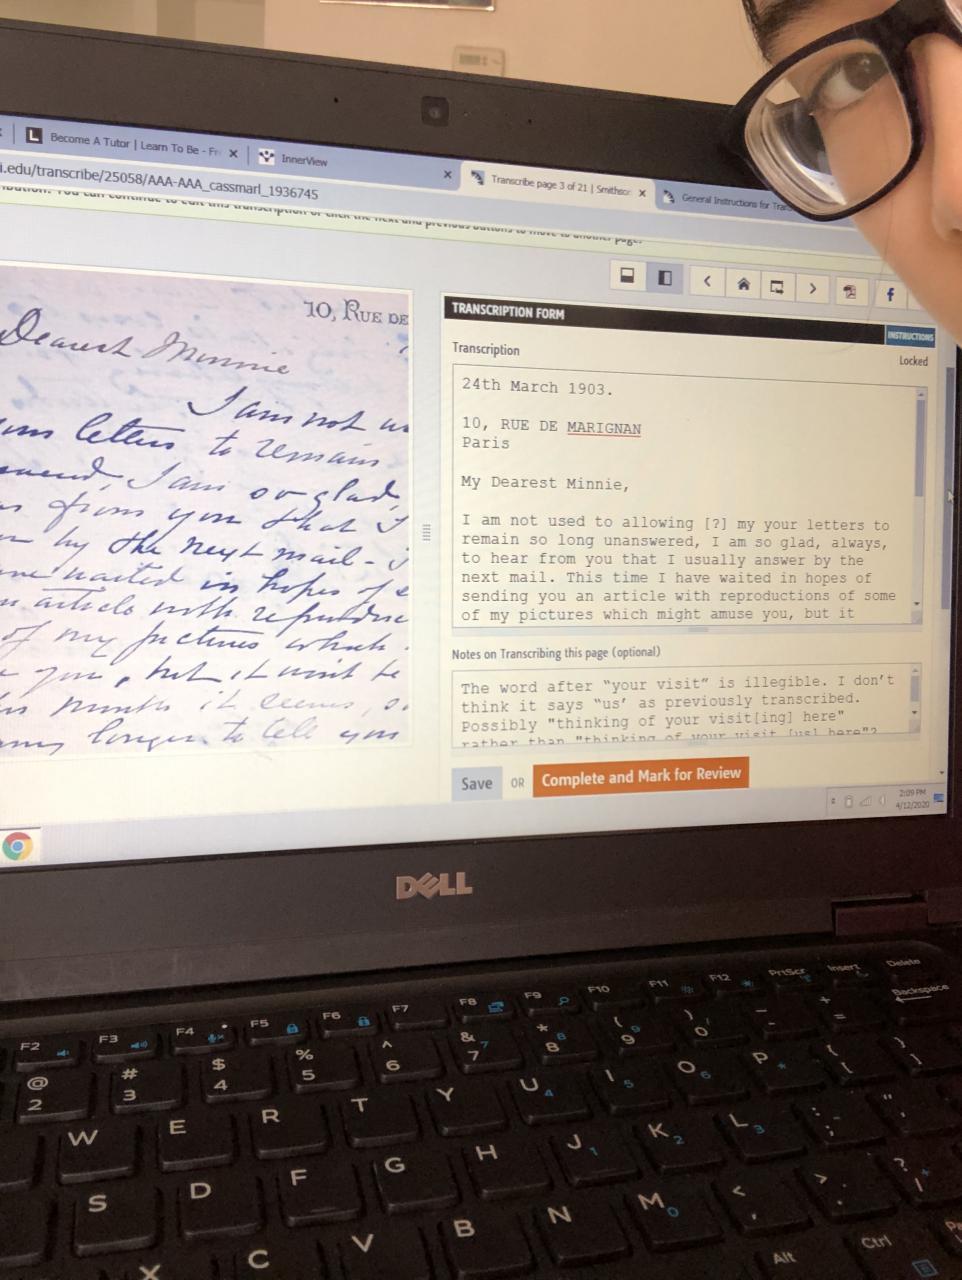 Become A Tutor | Learn To Be - Fr
InnerView
Transcribe page 3 of 21 | Smithson
General Instructions for Tran
i.edu/transcribe/25058/AAA-AAA_cassmarl_1936745
You can continue to edit this transcription or click the next and previous buttons to move to another page.
10, RUE DE
Dearest Minnie
I am not
letters to remain
I am so glad,
from you that I
by the next mail -
waited in hopes of
article with
of my pictures which
you, but it wont be
month it seems, so
longer to tell you
TRANSCRIPTION FORM
INSTRUCTIONS
Transcription
Locked
24th March 1903.
10, RUE DE MARIGNAN
Paris
My Dearest Minnie,
I am not used to allowing [?] my your letters to
remain so long unanswered, I am so glad, always,
to hear from you that I usually answer by the
next mail. This time I have waited in hopes of
sending you an article with reproductions of some
of my pictures which might amuse you, but it
Notes on Transcribing this page (optional)
The word after "your visit" is illegible. I don't
think it says "us' as previously transcribed.
Possibly "thinking of your visit[ing] here"
rather than "thinking of your visit [us] here"?
Save OR Complete and Mark for Review
2:09 PM
4/12/2020
DELL
F2 F3 F4 F5 F6 F7 F8 F9 F10 F11 F12 PrtScr Insert Delete
@ # $ % ^ & * ( ) - + Backspace
2 3 4 5 6 7 7 8 8 9 9 0 =
W E R T Y U 4 I 5 O 6 P * { [ } ]
S D F G H J 1 K 2 L 3 : ; " '
X C V B N M 0 < , > . ? /
Alt Ctrl